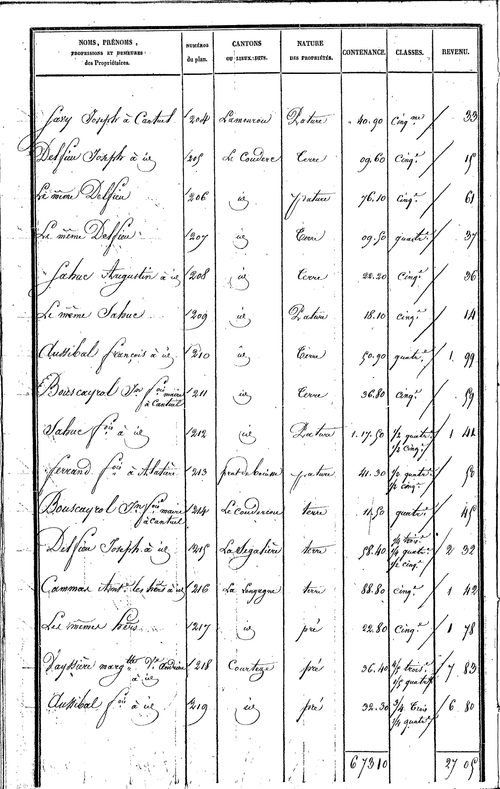 NOMS, PRÉNOMS, PROFESSIONS ET DEMEURES des Propriétaires. NUMÉROS du plan. CANTONS OU LIEUX-DITS. NATURE DES PROPRIÉTÉS. CONTENANCE. CLASSES. REVENU.
Joseph à Cantuel 1204 Pature 40.90 Cinqme 33
Delfieu Joseph à id 1205 Le Couderc Terre 09.60 Cinq.e 15
Le même Delfieu 1206 id pature 76.10 Cinq.e 61
Le même Delfieu 1207 id Terre 09.50 quatre.e 37
Sahuc Augustin à id 1208 id Terre 22.20 Cinq.e 36
Le même Sahuc 1209 id Pature 18.10 Cinq.e 14
Aussibal françois à id 1210 id Terre 50.90 quat.e 1 99
Bouscayrol Jn fois maire à Cantuel 1211 id Terre 36.80 Cinq.e 59
Sahuc fois à id 1212 id Pature 1.17.50 1/2 quat.e 1/2 cinq.e 1 41
ferrand fois à 1213 pature 41.30 1/2 quat.e 1/2 cinq.e 50
Bouscayrol Jn fois maire à Cantuel 1214 terre 11.50 quatre.e 45
Delfieu Joseph à id 1215 La Segalière terre 58.40 1/4 quat.e 1/2 cinq.e 2 32
Cammas Ant.e les hers à id 1216 terre 88.80 cinq.e 1 42
Les mêmes hers 1217 id pré 22.80 Cinq.e 1 78
Vayssière marg.te Ve Andrieu à id 1218 Courteze pré 36.40 7 83
Aussibal fois à id 1219 id pré 32.30 3/4 trois 1/4 quat.e 6 80
6 73 10 27 05